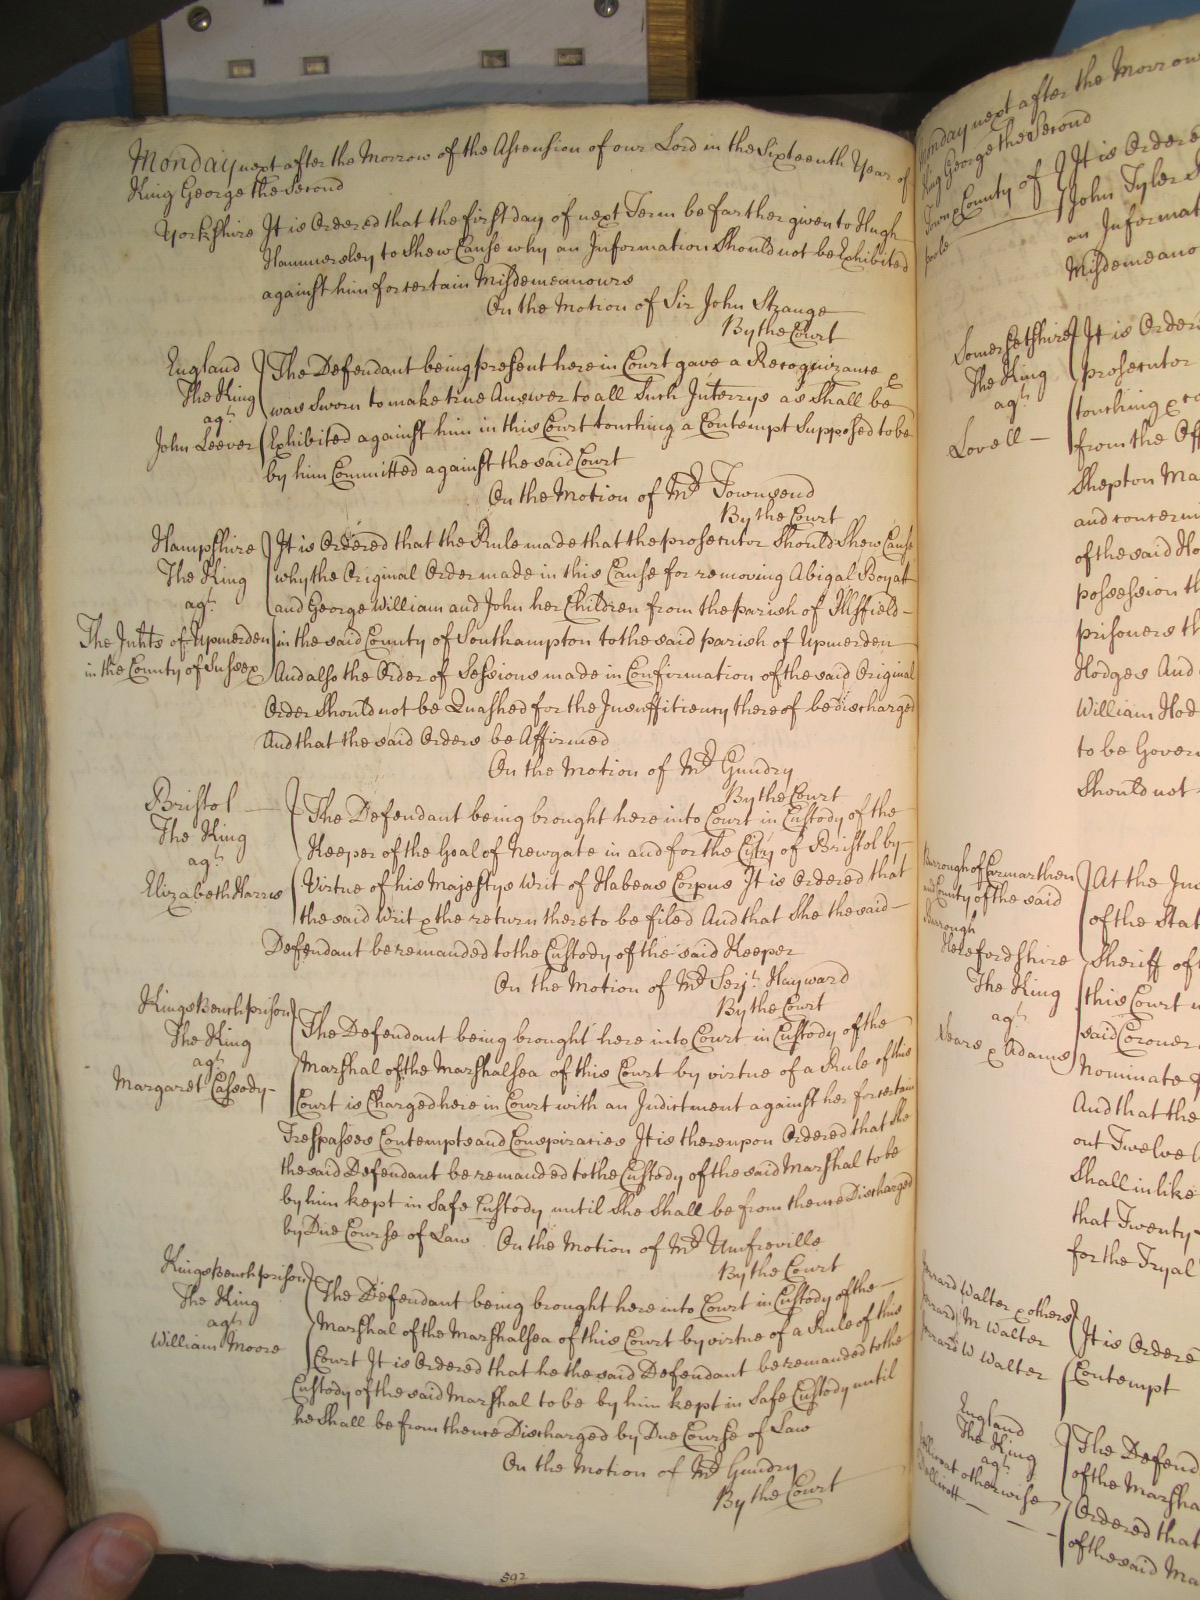 Monday next after the Morrow of the Ascension of our Lord in the Sixteenth Year of
King George the Second
Yorkshire It is Ordered that the first day of next Term be farther given to Hugh
Hammersley to Shew Cause why an Information Should not be Exhibited
against him for certain Misdemeanours
On the Motion of Sir John Strange
By the Court
England
The King
agt.
John Leever
The Defendant being present here in Court gave a Recognizance &
was Sworn to make true Answer to all Such Interrys as Shall be
Exhibited against him in this Court touching a Contempt Supposed to be
by him Committed against the said Court
On the Motion of Mr. Townsend
By the Court
Hampshire
The King
agt.
The Inhts of Upmerden
in the County of Sussex
It is Ordered that the Rule made that the prosecutor Should Shew Cause
why the Original Order made in this Cause for removing Abigal Boyatt
and George William and John her Children from the parish of Illsfield
in the said County of Southampton to the said parish of Upmerden
And also the Order of Sessions made in Confirmation of the said Original
Order Should not be Quashed for the Insufficiency thereof be discharged
And that the said Orders be Affirmed
On the Motion of Mr. Gundry
By the Court
Bristol
The King
agt.
Elizabeth Harris
The Defendant being brought here into Court in Custody of the
Keeper of the Goal of Newgate in and for the City of Bristol by
Virtue of his Majestys Writ of Habeas Corpus It is Ordered that
the said Writ & the return thereto be filed And that She the said
Defendant be remanded to the Custody of the said Keeper
On the Motion of Mr. Serjt. Hayward
By the Court
Kings Bench prison
The King
agt.
Margaret Cassody
The Defendant being brought here into Court in Custody of the
Marshal of the Marshalsea of this Court by virtue of a Rule of this
Court is Charged here in Court with an Indictment against her for certain
Trespasses Contempts and Conspiracies It is thereupon Ordered that She
the said Defendant be remanded to the Custody of the said Marshal to be
by him kept in Safe Custody until She Shall be from thence Discharged
by Due Course of Law On the Motion of Mr. Umfreville
By the Court
Kings Bench prison
The King
agt.
William Moore
The Defendant being brought here into Court in Custody of the
Marshal of the Marshalsea of this Court by virtue of a Rule of this
Court It is Ordered that he the said Defendant be remanded to the
Custody of the said Marshal to be by him kept in Safe Custody until
he Shall be from thence Discharged by Due Course of Law
On the Motion of Mr. Gundry
By the Court
592
Monday next after the Morrow
King George the Second
Town & County of
poole
It is Ordered
John Tyler
an Informat
Misdemeano
Somersetshire
The King
agt.
Lovell
It is Order
prosecutor
touching & co
from the Off
Shepton Ma
and concerni
of the said Ho
possession th
prisoners th
Hodges And
William Hod
to be Govern
Should not
Burrough of Carmarthen
and County of the said
Burrough
Herefordshire
The King
agt.
Sears & Adams
At the In
of the Stat
Sheriff of
this Court
said Coroner
Nominate
And that the
out Twelve
Shall in like
that Twenty
for the Tryal
Walter & others
M Walter
W Walter
It is Ordere
Contempt
England
The King
agt.
otherwise
The Defend
of the Marsha
Ordered that
of the said Ma